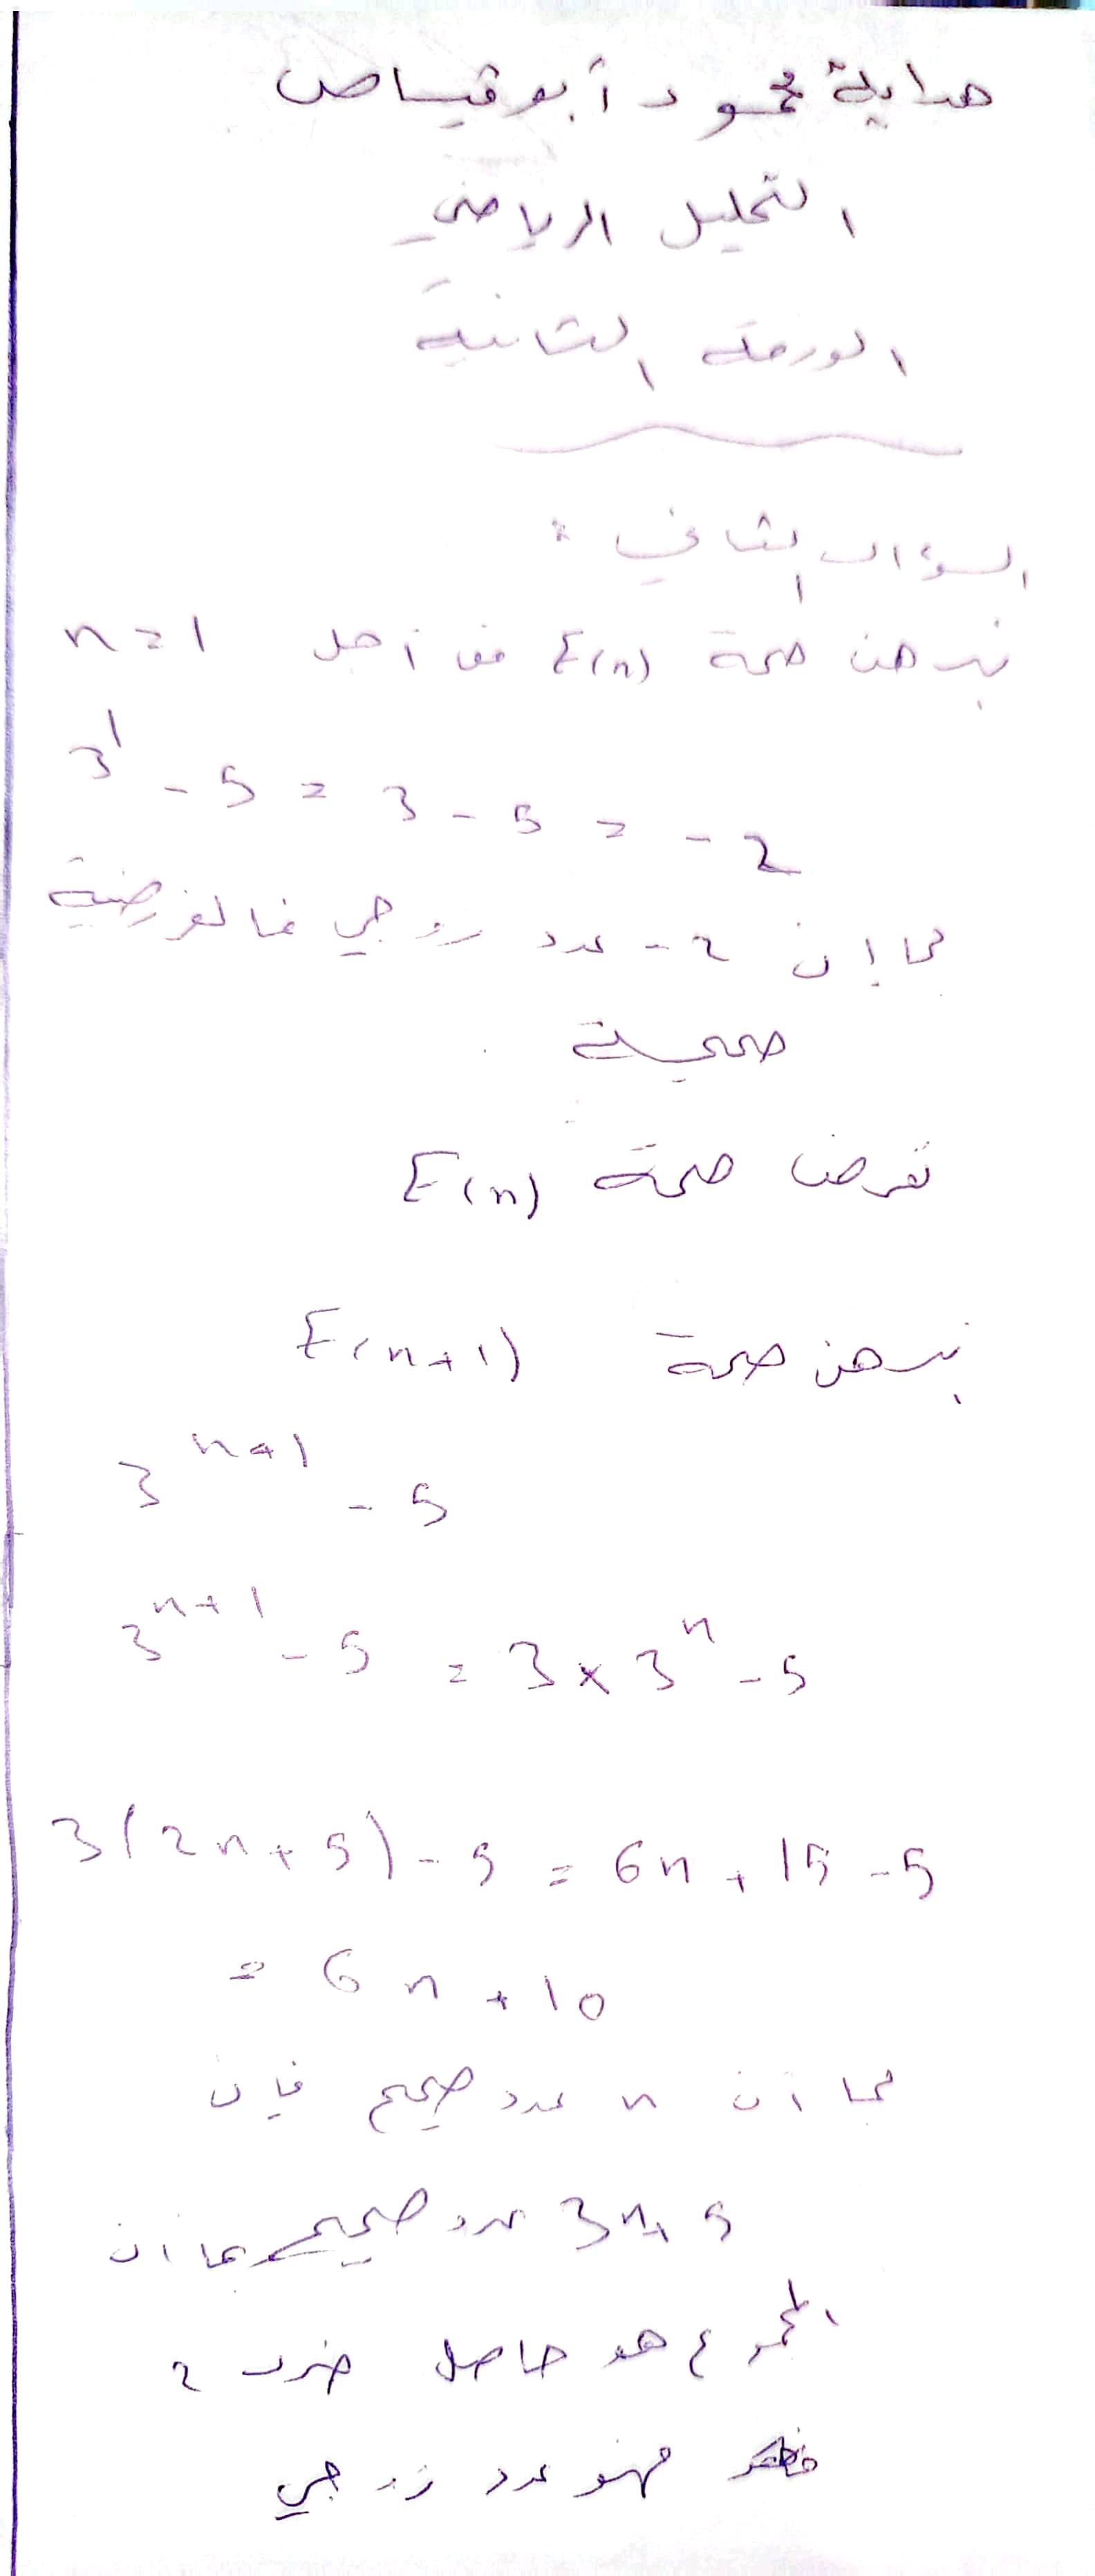 هداية محمود أبو قياص
التحليل الرياضي
الورقة الثانية
السؤال الثاني :
نبرهن صحة E(n) من أجل n=1
3^1 - 5 = 3 - 5 = -2
بما إن 2- عدد زوجي فالفرضية
صحيحة
نفرض صحة E(n)
نبرهن صحة E(n+1)
3^{n+1} - 5
3^{n+1} - 5 = 3 × 3^n - 5
3(2n+5) - 5 = 6n + 15 - 5
= 6n + 10
بما أن n عدد صحيح فإن
3n+5 عدد صحيح بما أن
المجموع هو حاصل ضرب 2
فهو عدد زوجي